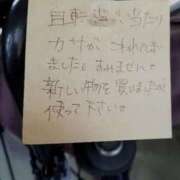 自転車に当たり
カサが こわれてしまい
ました。すみません。
新しい物を買いましたが
使って下さい。